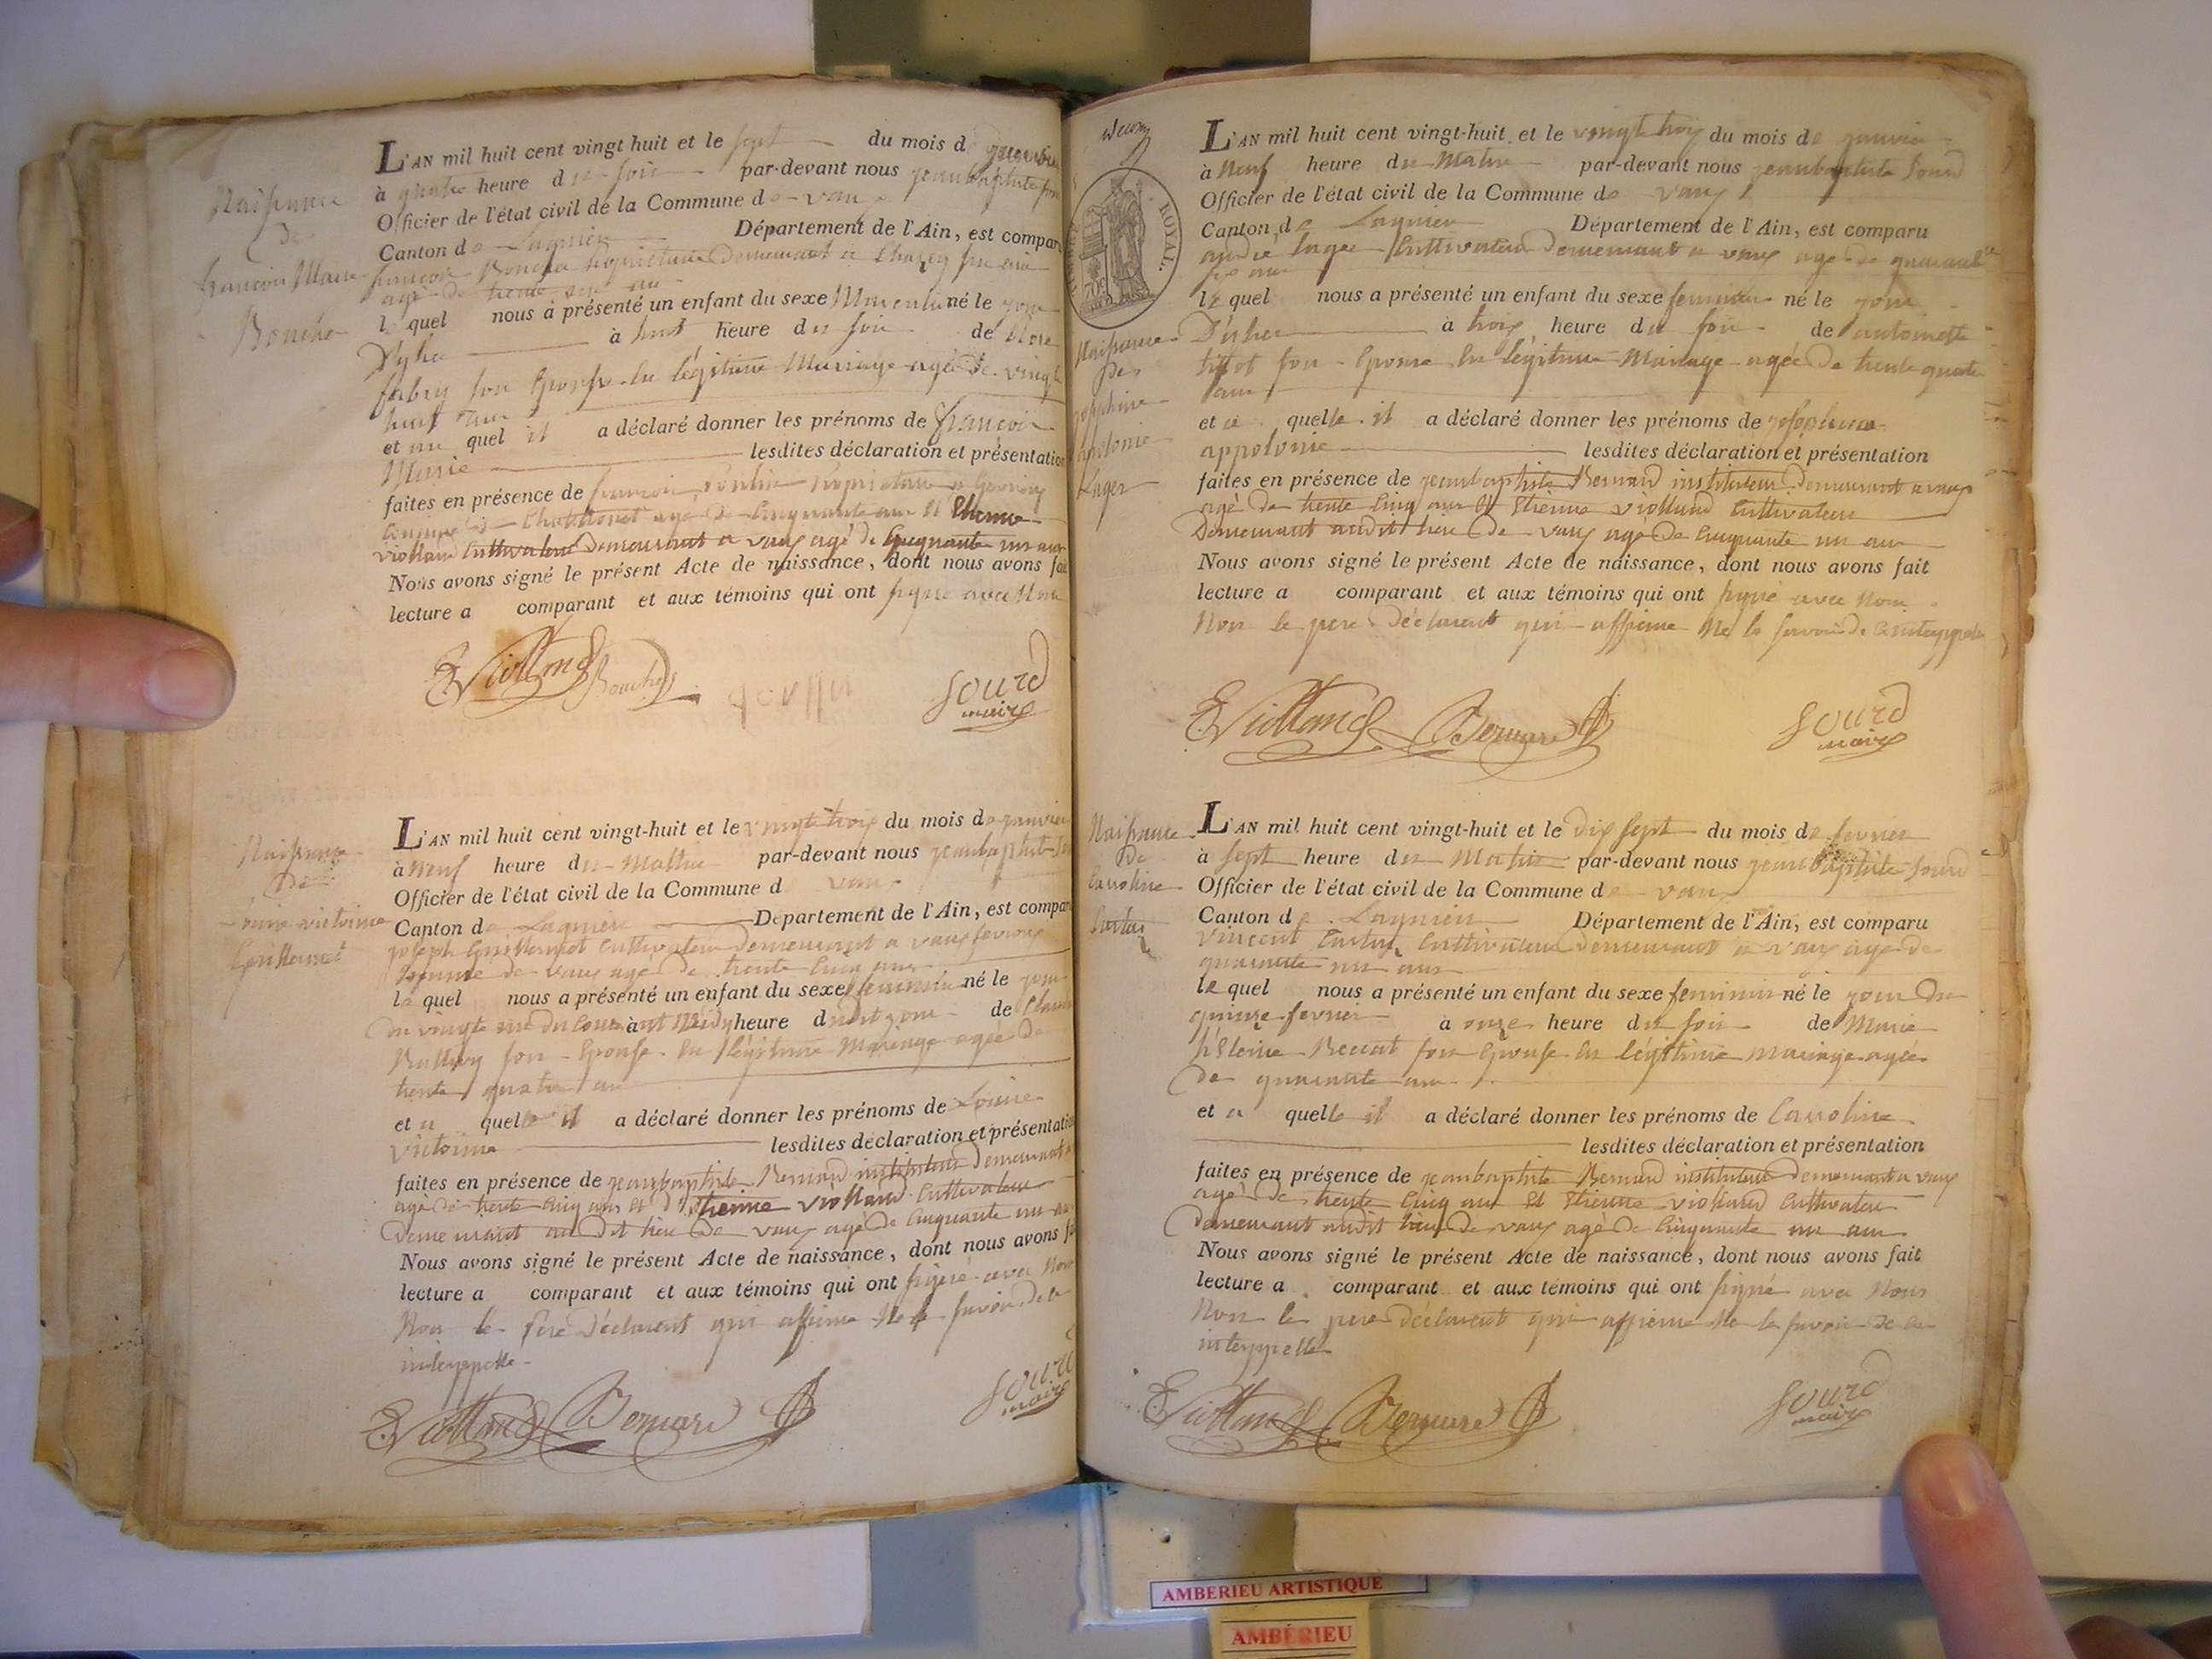 Naissance
de
françois Marie
Bouche
L'AN mil huit cent vingt huit et le sept du mois d
à quatre heure du soir par-devant nous jeanbaptiste
Officier de l'état civil de la Commune de vaux
Canton de Lagnieu Département de l'Ain, est compar
françois propriétaire Demeurant a
agé de trente sept ans
le quel nous a présenté un enfant du sexe Masculin né le jour
D'yher à huit heure du soir de
fabry son Epouse en légitime Mariage agée de vingt
huit ans
et au quel il a déclaré donner les prénoms de françois
Marie lesdites déclaration et présentation
faites en présence de françois propriétaire a
agé de Cinquante ans et Etienne
violland Cultivateur Demeurant a vaux agé de Cinquante un ans
Nous avons signé le présent Acte de naissance, dont nous avons fai
lecture a comparant et aux témoins qui ont signé avec Nous
EViolland
SOURD
maire
Naissance
de
Louise victoire
Guillermet
L'AN mil huit cent vingt-huit et le vingt trois du mois de janvier
à Neuf heure du Mattin par-devant nous jeanbaptiste
Officier de l'état civil de la Commune d vaux
Canton de Lagnieu Département de l'Ain, est compar
joseph Guillermet Cultivateur Demeurant a vaux
Commune de vaux agé de trente Cinq ans
le quel nous a présenté un enfant du sexe feminin né le jour
du vingt un du Cour. à heure de
son Epouse en légitime Mariage agée de
trente quatre an
et a quelle il a déclaré donner les prénoms de Louise
victoire lesdites déclaration et présentation
faites en présence de jeanbaptiste Bernard instituteur Demeurant
agé de trente Cinq ans et d'Etienne violland Cultivateur
Demeurant au dit lieu De vaux agé de Cinquante un an
Nous avons signé le présent Acte de naissance, dont nous avons fa
lecture a comparant et aux témoins qui ont signé avec Nous
Non le Père Déclarent qui affirme Ne le savoir de ce
interppellé
EViolland Bernard
SOURD
maire
ROYAL.
Naissance
De
josephine
apolonie
Lager
L'AN mil huit cent vingt-huit et le vingt trois du mois de janvier
à Neuf heure du Matin par-devant nous jeanbaptiste Sourd
Officier de l'état civil de la Commune de vaux
Canton de Lagnieu Département de l'Ain, est comparu
andré lager Cultivateur Demeurant a vaux agé de quarante
six ans
le quel nous a présenté un enfant du sexe feminin né le jour
D'yher à trois heure du soir de antoinette
son Epouse En légitime Mariage agée de trente quatre
ans
et a quelle il a déclaré donner les prénoms de josephine
appolonie lesdites déclaration et présentation
faites en présence de jeanbaptiste Bernard instituteur Demeurant a vaux
agé de trente Cinq ans et Etienne violland Cultivateur
Demeurant audit lieu De vaux agé de Cinquante un an
Nous avons signé le présent Acte de naissance, dont nous avons fait
lecture a comparant et aux témoins qui ont signé avec Nous
Non le pere Déclarent qui affirme Ne le savoir de ce interppellé
EViolland Bernard
SOURD
maire
Naissance
De
Caroline
L'AN mil huit cent vingt-huit et le Dix Sept du mois de fevrier
à Sept heure du Matin par-devant nous jeanbaptiste Sourd
Officier de l'état civil de la Commune de vaux
Canton de Lagnieu Département de l'Ain, est comparu
vincent Cultivateur Demeurant a vaux agé de
quarante un ans
le quel nous a présenté un enfant du sexe feminin né le jour Du
quinze fevrier à onze heure du soir de Marie
son Epouse en légitime mariage agée
de quarante ans
et a quelle il a déclaré donner les prénoms de Caroline
lesdites déclaration et présentation
faites en présence de jeanbaptiste Bernard instituteur Demeurant a vaux
agé de trente Cinq ans et Etienne violland Cultivateur
Demeurant audit lieu De vaux agé de Cinquante un ans
Nous avons signé le présent Acte de naissance, dont nous avons fait
lecture a comparant et aux témoins qui ont signé avec Nous
Non le pere Déclarent qui affirme Ne le savoir de ce
interppellé
EViolland Bernard
SOURD
maire
AMBERIEU ARTISTIQUE
AMBÉRIEU